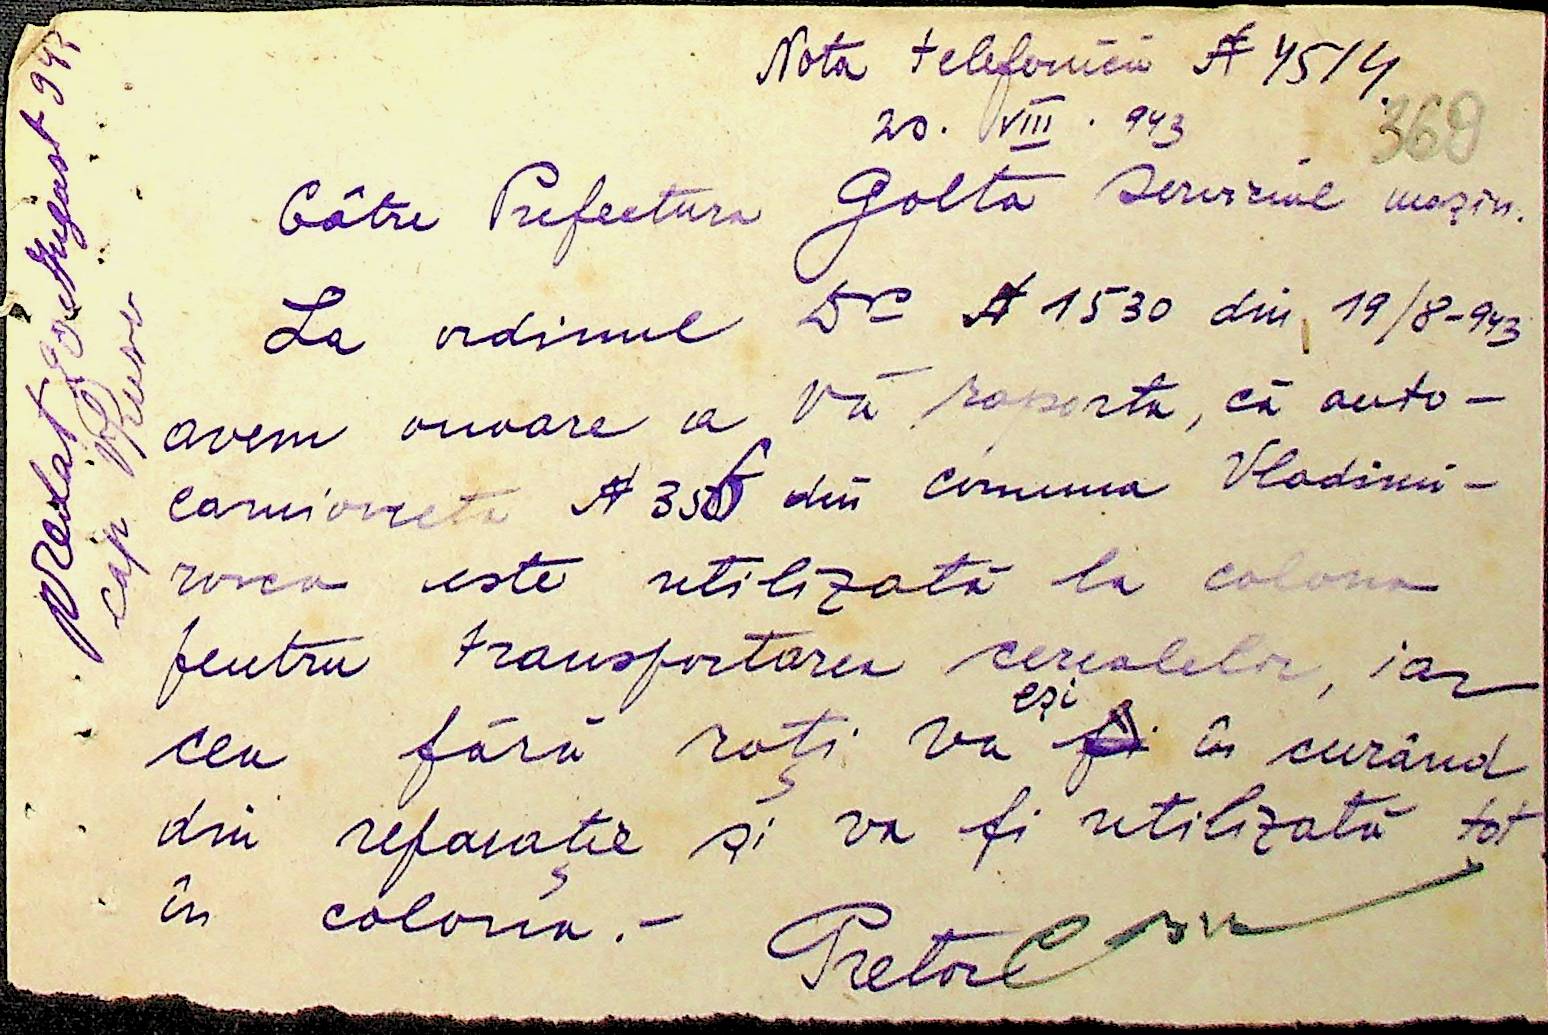 Nota telefonică № 4514
20. VIII. 943
369
Către Prefectura Golta Serviciul mașin.
La ordinul Dv № 1530 din 19/8-943
avem onoare a Vă raporta, că auto-
camioneta № din comuna Vladimi-
rovca este utilizată la colona
pentru transportarea cerealelor, iar
cea fără roți va eși în curând
din reparație și va fi utilizată tot
în colona.-
Pretor
Predat 20 August 943
cap Rusu